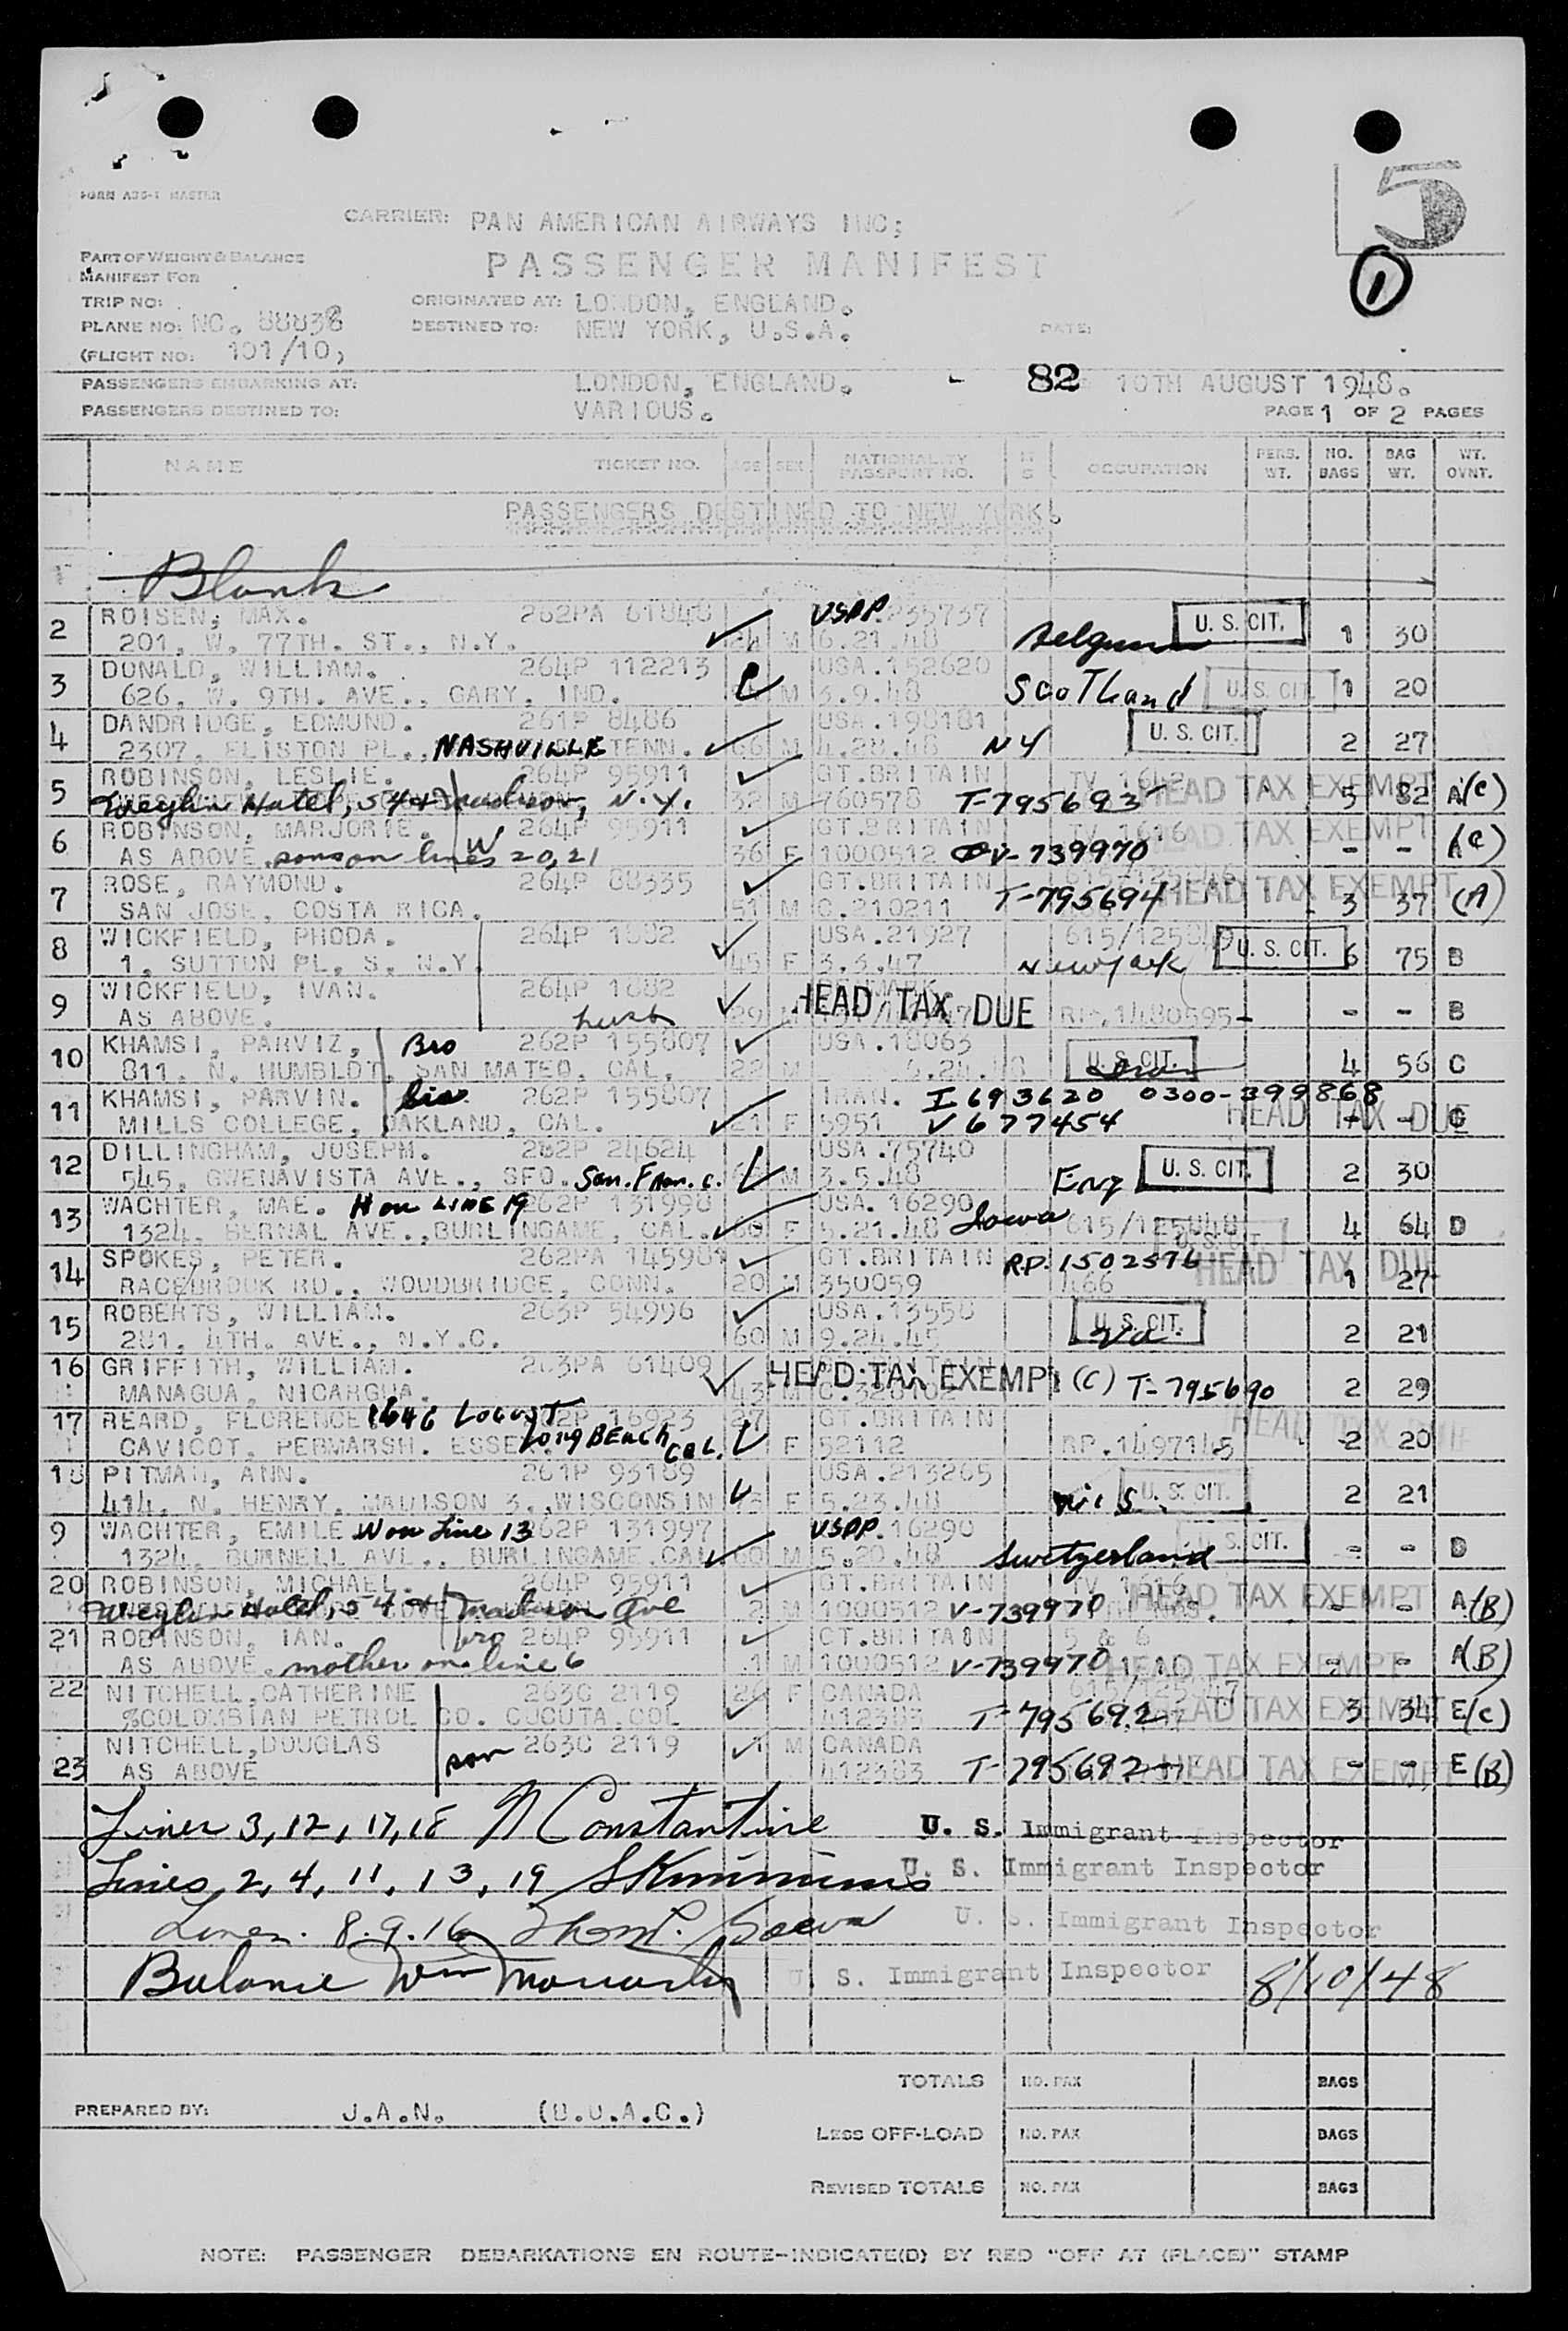 5
FORM ADS-1 MASTER
CARRIER: PAN AMERICAN AIRWAYS INC;
PASSENGER MANIFEST
1
PART OF WEIGHT & BALANCE
MANIFEST FOR
TRIP NO:
ORIGINATED AT: LONDON, ENGLAND.
PLANE NO: NC. 88838
DESTINED TO: NEW YORK, U.S.A.
DATE:
(FLIGHT NO: 101/10,
PASSENGERS EMBARKING AT: LONDON, ENGLAND. - 82 10TH AUGUST 1948.
PASSENGERS DESTINED TO: VARIOUS.
PAGE 1 OF 2 PAGES
NAME TICKET NO. AGE SEX NATIONALITY PASSPORT NO. OCCUPATION PERS. WT. NO. BAGS BAG WT. WT. OVNT.
PASSENGERS DESTINED TO NEW YORK.
Blank
2 ROISEN, MAX. 262PA 61848 USPP. 235737 U. S. CIT.
201, W. 77TH. ST., N.Y. M 6.21.48 Belgium 1 30
3 DONALD, WILLIAM. 264P 112213 USA.152620
626, W. 9TH. AVE., GARY, IND. M 3.9.48 Scotland U. S. CIT. 1 20
4 DANDRIDGE, EDMUND. 261P 8486 USA.198181 U. S. CIT.
2307, ELISTON PL., NASHVILLE TENN. 66 M 4.28.48 NY 2 27
5 ROBINSON, LESLIE. 264P 95911 GT.BRITAIN TV 1642 HEAD TAX EXEMPT
Weylin Hotel, 54 & Madison, N.Y. 32 M 760578 T-795693 5 82 A(C)
6 ROBINSON, MARJORIE. W 264P 95911 GT.BRITAIN TV 1616 HEAD TAX EXEMPT
AS ABOVE. sons on lines 20,21 36 F 1000512 V-739970 - - A(C)
7 ROSE, RAYMOND. 264P 88335 GT.BRITAIN HEAD TAX EXEMPT
SAN JOSE, COSTA RICA. 51 M C.210211 T-795694 3 37 (A)
8 WICKFIELD, PHODA. 264P 1882 USA.21927 U. S. CIT.
1, SUTTON PL, S, N.Y. 45 F 3.3.47 New York 6 75 B
9 WICKFIELD, IVAN. 264P 1882 HEAD TAX DUE
AS ABOVE. husb 29 RP.1480595 - - B
10 KHAMSI, PARVIZ, Bro 262P 155807 USA.18063 U. S. CIT.
811, N. HUMBLDT, SAN MATEO, CAL. 22 M Iran 4 56 C
11 KHAMSI, PARVIN. Sis 262P 155807 IRAN. I 693620 0300-399868 HEAD TAX DUE
MILLS COLLEGE, OAKLAND, CAL. 21 F 5951 V 677454 - - C
12 DILLINGHAM, JOSEPH. 262P 24624 USA.75740 U. S. CIT.
545, GWENAVISTA AVE., SFO. San. Fran. c. M 3.5.48 Eng 2 30
13 WACHTER, MAE. H on LINE 19 262P 131998 USA. 16290 U. S. CIT.
1324, BERNAL AVE., BURLINGAME, CAL. 60 F 5.21.48 Iowa 615/125848 4 64 D
14 SPOKES, PETER. 262PA 145981 GT.BRITAIN R.P. 1502596 HEAD TAX DUE
RACEBROOK RD., WOODBRIDGE, CONN. 20 M 350059 466 1 27
15 ROBERTS, WILLIAM. 263P 54996 USA.13558 U. S. CIT.
281, 4TH. AVE., N.Y.C. 60 M 9.24.45 Va. 2 21
16 GRIFFITH, WILLIAM. 263PA 61409 HEAD TAX EXEMPT (C) T-795690
MANAGUA, NICARGUA. 43 M 2 29
17 REARD, FLORENCE 1646 Locust 262P 16923 27 GT.BRITAIN HEAD TAX DUE
CAVICOT. PEBMARSH. ESSEX. Long BEACh CAL. F 52112 RP.1497145 2 20
18 PITMAN, ANN. 261P 93189 USA.213265 U. S. CIT.
414, N. HENRY, MADISON 3., WISCONSIN F 5.23.48 Wis. 2 21
9 WACHTER, EMILE W on Line 13 262P 131997 USPP. 16290 U. S. CIT.
1324, BURNELL AVE., BURLINGAME.CAL 60 M 5.20.48 Switzerland - - D
20 ROBINSON, MICHAEL. 264P 95911 GT.BRITAIN TV 1616 HEAD TAX EXEMPT
Weylin Hotel, 54 & Madison Ave 2 M 1000512 V-739970 - - A(B)
21 ROBINSON, IAN. bro 264P 95911 GT.BRITAIN 5 & 6
AS ABOVE. mother on line 6 1 M 1000512 V-739970 HEAD TAX EXEMPT - - A(B)
22 NITCHELL,CATHERINE 263C 2119 26 F CANADA
%COLOMBIAN PETROL CO. CUCUTA.COL 412383 T-795692 HEAD TAX EXEMPT 3 34 E(C)
23 NITCHELL,DOUGLAS son 263C 2119 1 M CANADA
AS ABOVE 412383 T-795692 HEAD TAX EXEMPT - - E(B)
Lines 3,12,17,18 N Constantine U. S. Immigrant Inspector
Lines 2,4,11,13,19 U. S. Immigrant Inspector
Lines. 8.9.16 U. S. Immigrant Inspector
Balance Wm Moriarty U. S. Immigrant Inspector 8/10/48
TOTALS NO. PAX BAGS
PREPARED BY: J.A.N. (B.O.A.C.)
LESS OFF-LOAD NO. PAX BAGS
REVISED TOTALS NO. PAX BAGS
NOTE: PASSENGER DEBARKATIONS EN ROUTE-INDICATE(D) BY RED "OFF AT (PLACE)" STAMP